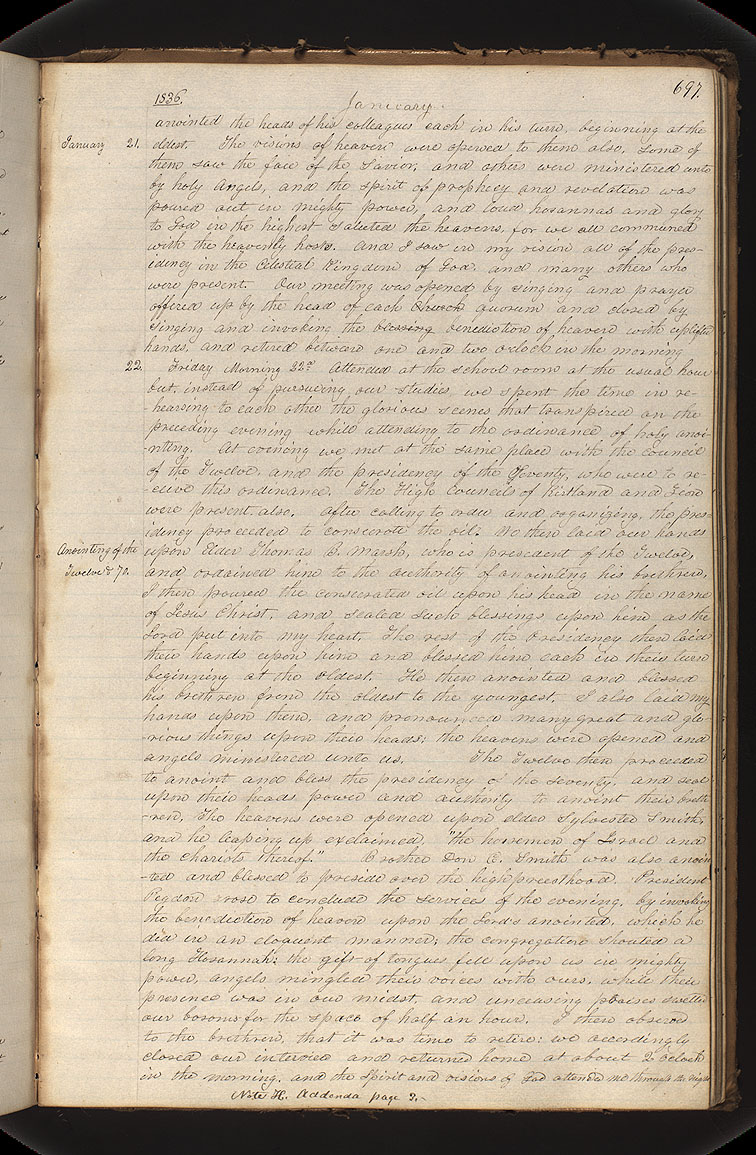 1836.
January.
697.
anointed the heads of his colleagues each in his turn, beginning at the
January 21. oldest. The visions of heaven were opened to them also, some of
them saw the face of the Savior, and others were ministered unto
by holy angels, and the spirit of prophecy and revelation was
poured out in mighty power, and loud hosannas and glory
to God in the highest saluted the heavens, for we all communed
with the heavenly hosts. And I saw in my vision all of the pres-
idency in the Celestial Kingdom of God, and many others who
were present. Our meeting was opened by singing and prayer
offered up by the head of each quorum and closed by
singing and invoking the blessing benediction of heaven with uplifted
hands, and retired between one and two oclock in the morning
22. Friday Morning 22nd Attended at the school room at the usual hour
but, instead of pursueing our studies we spent the time in re-
-hearsing to each other the glorious scenes that transpired on the
preceding evening while attending to the ordinance of holy anoi-
nting. At evening we met at the same place with the council
of the Twelve, and the presidency of the Seventy, who were to re-
-ceive this ordinance. The High Councils of Kirtland and Zion
were present also. After calling to order and organizing, the pres-
idency proceeded to consecrate the oil. We then laid our hands
Anointing of the
Twelve & 70.
upon Elder Thomas B. Marsh, who is president of the Twelve,
and ordained him to the authority of anointing his brethren,
I then poured the consecrated oil upon his head in the name
of Jesus Christ, and sealed such blessings upon him as the
Lord put into my heart. The rest of the Presidency then laid
their hands upon him and blessed him each in their turn
beginning at the oldest. He then anointed and blessed
his brethren from the oldest to the youngest. I also laid my
hands upon them, and pronounced many great and glo-
rious things upon their heads; the heavens were opened and
angels ministered unto us. The Twelve then proceeded
to anoint and bless the presidency of the Seventy, and seal
upon their heads power and authority to anoint their breth
-ren, The heavens were opened upon elder Sylvester Smith,
and he leaping up exclaimed, "The horsemen of Israel and
the chariots thereof." Brother Don C. Smith was also anoin
-ted and blessed to preside over the high priesthood. President
Rigdon arose to conclude the services of the evening, by invoking
the benediction of heaven upon the Lord's anointed, which he
did in an eloquent manner; the congregation shouted a
long Hosannah: the gift of tongues fell upon us in mighty
power, angels mingled their voices with ours, while their
presence was in our midst, and unceasing praises swelled
our bosoms for the space of half an hour. I then observed
to the brethren, that it was time to retire: we accordingly
closed our interview and returned home at about 2 oclock
in the morning, and the Spirit and visions of God attended me through the night
Note H. Addenda page 2.